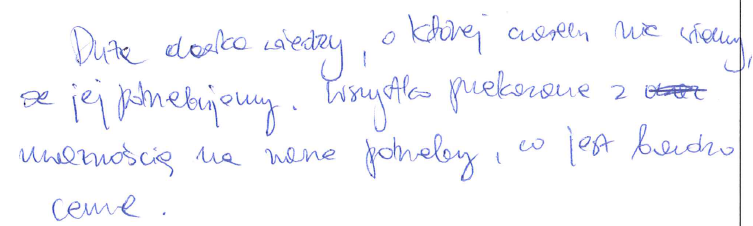 Duża dawka wiedzy, o której czasem nie wiemy,
że jej potrzebujemy. Wszystko przekazane z
uważnością na nasze potrzeby, co jest bardzo
cenne.